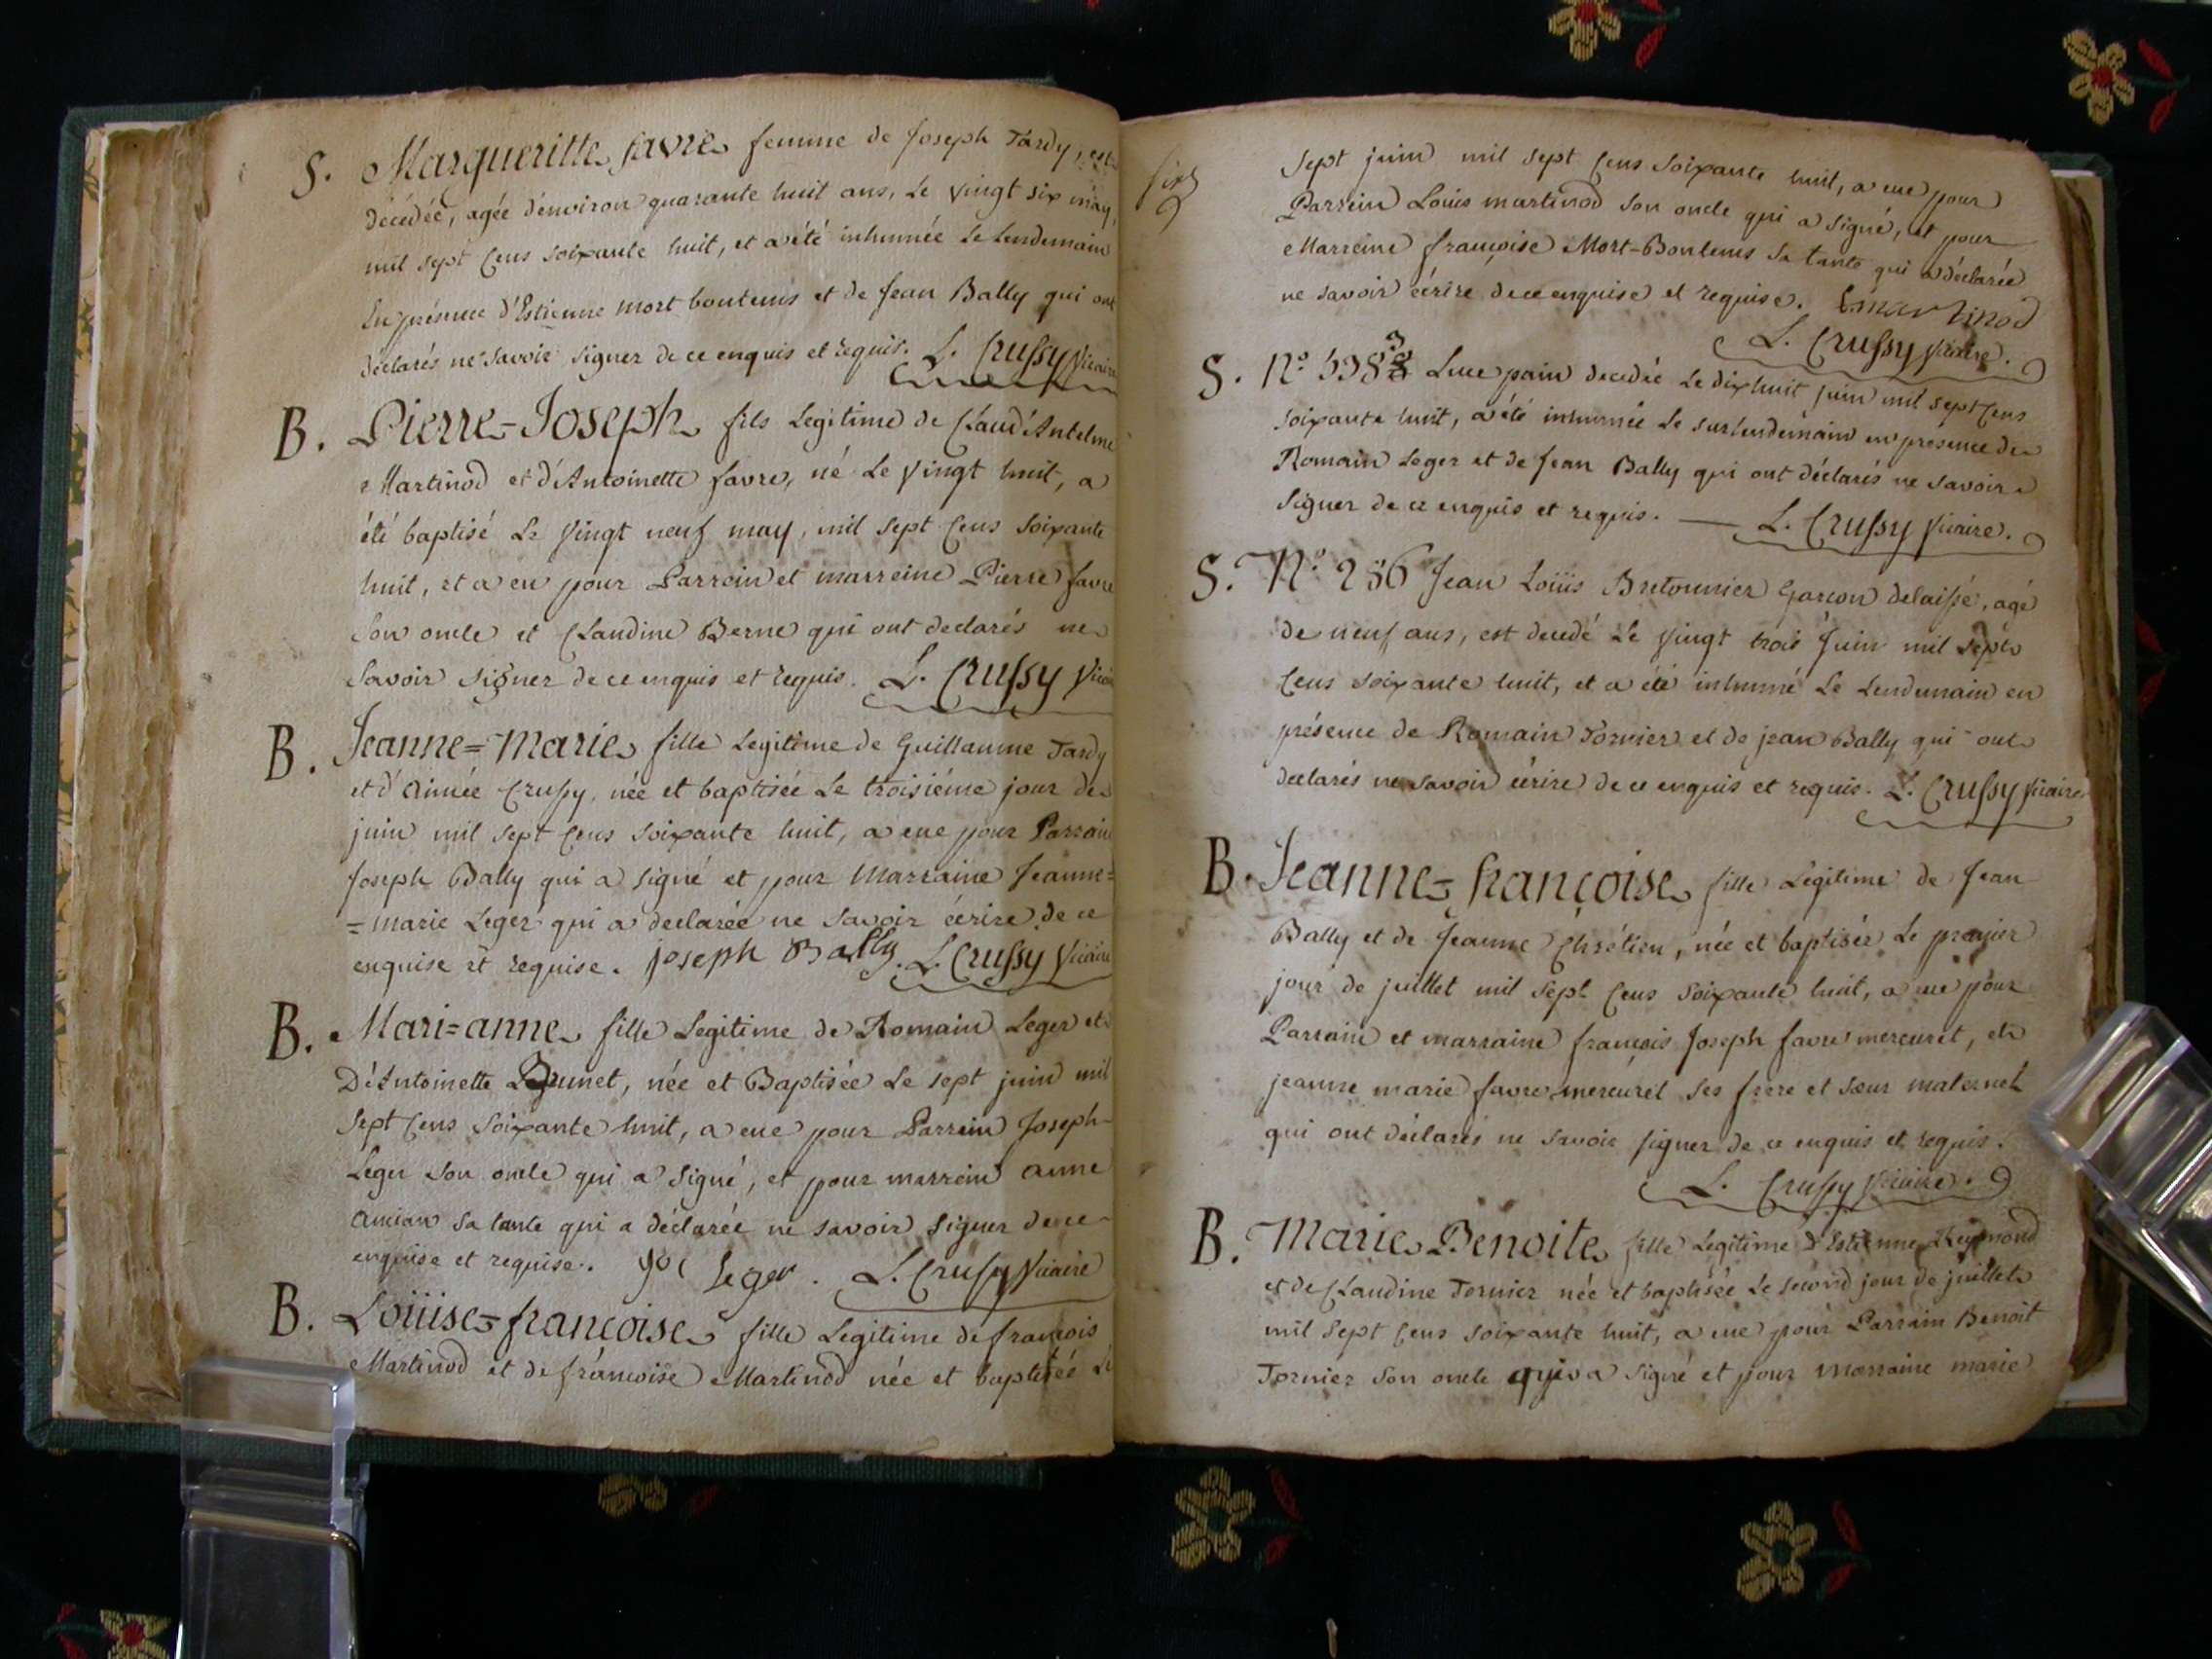 S. Margueritte favre femme de Joseph Tardy, est
décédée, agée d'environ quarante huit ans, Le vingt six may,
mil sept Cens soixante huit, et a été inhumée Le Lendemain
En présence d'Estienne mort boutems et de Jean Bally qui ont
déclarés ne savoir signer de ce enquis et requis. L. Crussy Vicaire
B. Pierre=Joseph fils Legitime de Claud'Antelme
Martinod et d'Antoinette favre, né Le vingt huit, a
été baptisé Le vingt neuf may, mil sept Cens soixante
huit, et a eu pour Parrein et marreine Pierre favre
Son oncle et Claudine Berne qui ont declarés ne
savoir signer de ce enquis et requis. L. Crussy Vicaire
B. Jeanne=Marie fille Legitime de Guillaume Tardy
et d'Aimée Crussy, née et baptisée Le troisiéme jour de
juin mil sept Cens soixante huit, a eue pour Parrain
Joseph Bally qui a signé et pour Marraine Jeanne=
=marie Leger qui a declarée ne savoir écrire de ce
enquise et requise. joseph Bally. L. Crussy Vicaire
B. Mari=anne fille Legitime de Romain Leger et
D'Antoinette Brunet, née et Baptisée Le sept juin mil
sept Cens soixante huit, a eue pour Parrein Joseph
Leger son oncle qui a signé, et pour marrein anne
sa tante qui a déclarée ne savoir signer de ce
enquise et requise. leger. L. Crussy Vicaire
B. Loüise=françoise fille Legitime de françois
Martinod et de françoise Martinod née et baptisée Le
sept juin mil sept Cens soixante huit, a eue pour
Parrein Louis martinod son oncle qui a signé, et pour
Marreine françoise Mort-Boutems sa tante qui a déclarée
ne savoir écrire de ce enquise et requise. L. martinod
L. Crussy Vicaire.
S. N.° Luce pain decedée Le dix huit juin mil sept Cens
soixante huit, a été inhumée Le surlendemain en presence de
Romain Leger et de Jean Bally qui ont déclarés ne savoir
signer de ce enquis et requis. — L. Crussy Vicaire.
S. N.° 256 Jean Loüis Bretonnier Garcon delaissé, agé
de neuf ans, est decedé Le vingt trois Juin mil sept
Cens soixante huit, et a été inhumé Le Lendemain en
présence de Romain Tornier et de jean Bally qui ont
declarés ne savoir écrire de ce enquis et requis. L. Crussy Vicaire
B. Jeanne=françoise fille Legitime de Jean
Bally et de Jeanne Chrétien, née et baptisée Le premier
jour de juillet mil sept Cens soixante huit, a eue pour
Parrain et marraine françois Joseph favre mercuret, et
jeanne marie favre mercuret ses frere et sœur maternel
qui ont déclarés ne savoir signer de ce enquis et requis.
L. Crussy Vicaire.
B. Marie Benoite fille Legitime d'Estienne Reymond
et de Claudine Tornier née et baptisée Le second jour de juillet
mil sept Cens soixante huit, a eue pour Parrain Benoit
Tornier son oncle qui a signé et pour Marraine marie